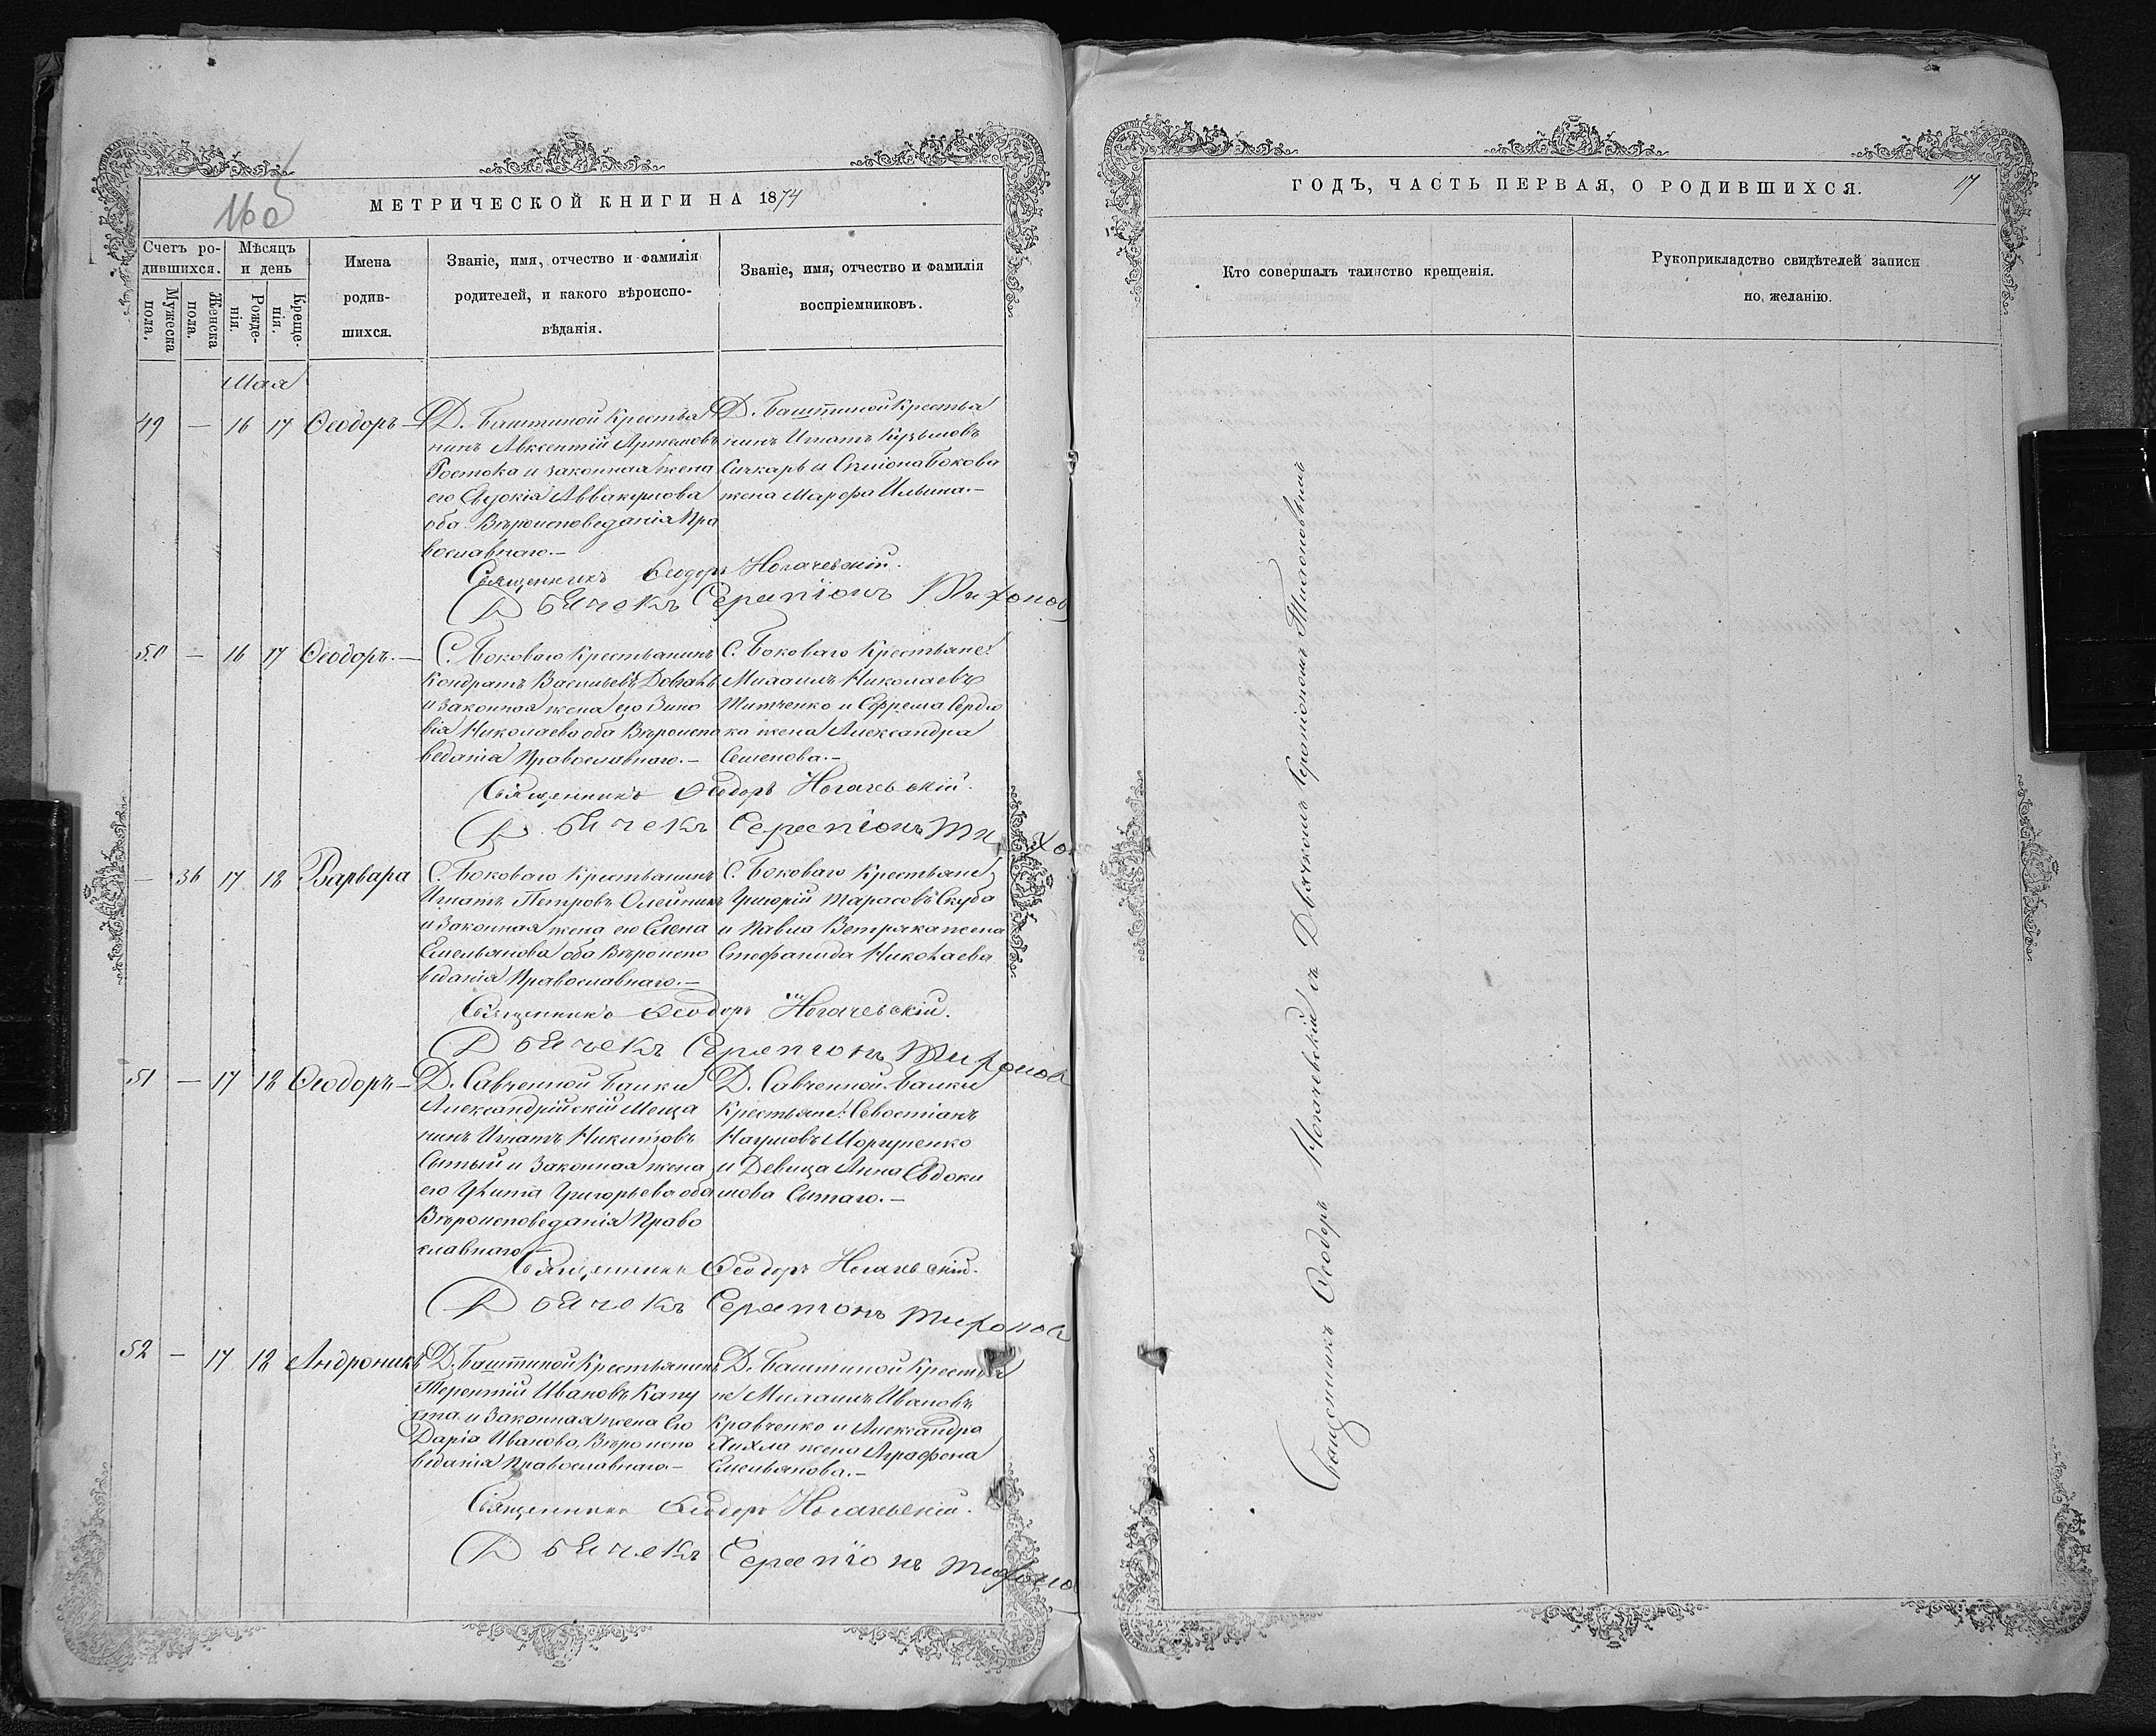 МЕТРИЧЕСКОЙ КНИГИ НА 1874
Счетъ ро-
дившихся.
Мужеска
пола.
Женска
пола.
Мѣсяцъ
и день
Рожде-
нія.
Креще-
нія.
Имена
родив-
шихся.
Званіе, имя, отчество и фамилія
родителей, и какого вѣроиспо-
вѣданія.
Званіе, имя, отчество и фамилія
воспріемниковъ.
Мая
49 — 16 17 Ѳеодоръ —
Д. Баштиной Крестья
нинъ Авксентій Артемовъ
Ростока и законная жена
его Евдокія Аввакумова
оба Вѣроисповеданія Пра
вославнаго.—
Д. Баштиной Крестья
нинъ Игнатъ Кузьмовъ
Сичкарь и Спиіона Бокова
жена Марфа Ильина.—
Священникъ Ѳеодоръ Ногачевскій.
Дьячекъ Серапіонъ Тихонов
50 — 16 17 Ѳеодоръ.—
С. Боковаго Крестьянинъ
Кондратъ Васильевъ
и законная жена его Зино
вія Николаева оба Вѣроиспо
веданія Православнаго.—
С. Боковаго Крестьяне:
Михаилъ Николаевъ
Титченко и Ефрема Сердю
ка жена Александра
Семенова.—
Священникъ Ѳеодоръ Ногачевскій.
Дьячекъ Серапіонъ Тихо
— 36 17 18 Варвара
С. Боковаго Крестьянинъ
Игнатъ Петровъ Олейникъ
и законная жена его Елена
Емельянова оба Вѣроиспо
вѣданія Православнаго.—
С. Боковаго Крестьяне
Григорій Тарасовъ Скуба
и Павла Ветряка жена
Стефанида Николаева
Священникъ Ѳеодоръ Ногачевскій.
Дьячекъ Серапіонъ Тихонов
51 — 17 18 Ѳеодоръ —
Д. Савченной Балки
Александрійскій Меща
нинъ Игнатъ Никитовъ
Сытый и законная жена
его Улита Григорьева оба
Вѣроисповеданія Право
славнаго —
Д. Савченной Балки
Крестьяне: Севостіанъ
Наумовъ Моргуненко
и Девица Анна Евдоки
мова Сытаго.—
Священникъ Ѳеодоръ Ногачевскій.
Дьячекъ Серапіонъ Тихонов
52 — 17 18 Андроникъ
Д. Баштиной Крестьянинъ
Терентій Ивановъ Капу
ста и законная жена Его
Дарія Иванова, Вѣроиспо
вѣданія Православнаго—
Д. Баштиной Крестья
не Михаилъ Ивановъ
Кравченко и Александра
Хихла жена Аграфена
Емельянова.—
Священникъ Ѳеодоръ Ногачевскій.
Дьячекъ Серапіонъ Тихоно
ГОДЪ, ЧАСТЬ ПЕРВАЯ, О РОДИВШИХСЯ.
17
Кто совершалъ таинство крещенія.
Рукоприкладство свидѣтелей записи
по желанію.
Священникъ Ѳеодоръ Ногачевскій съ Дьячкомъ Серапіономъ Тихоновымъ